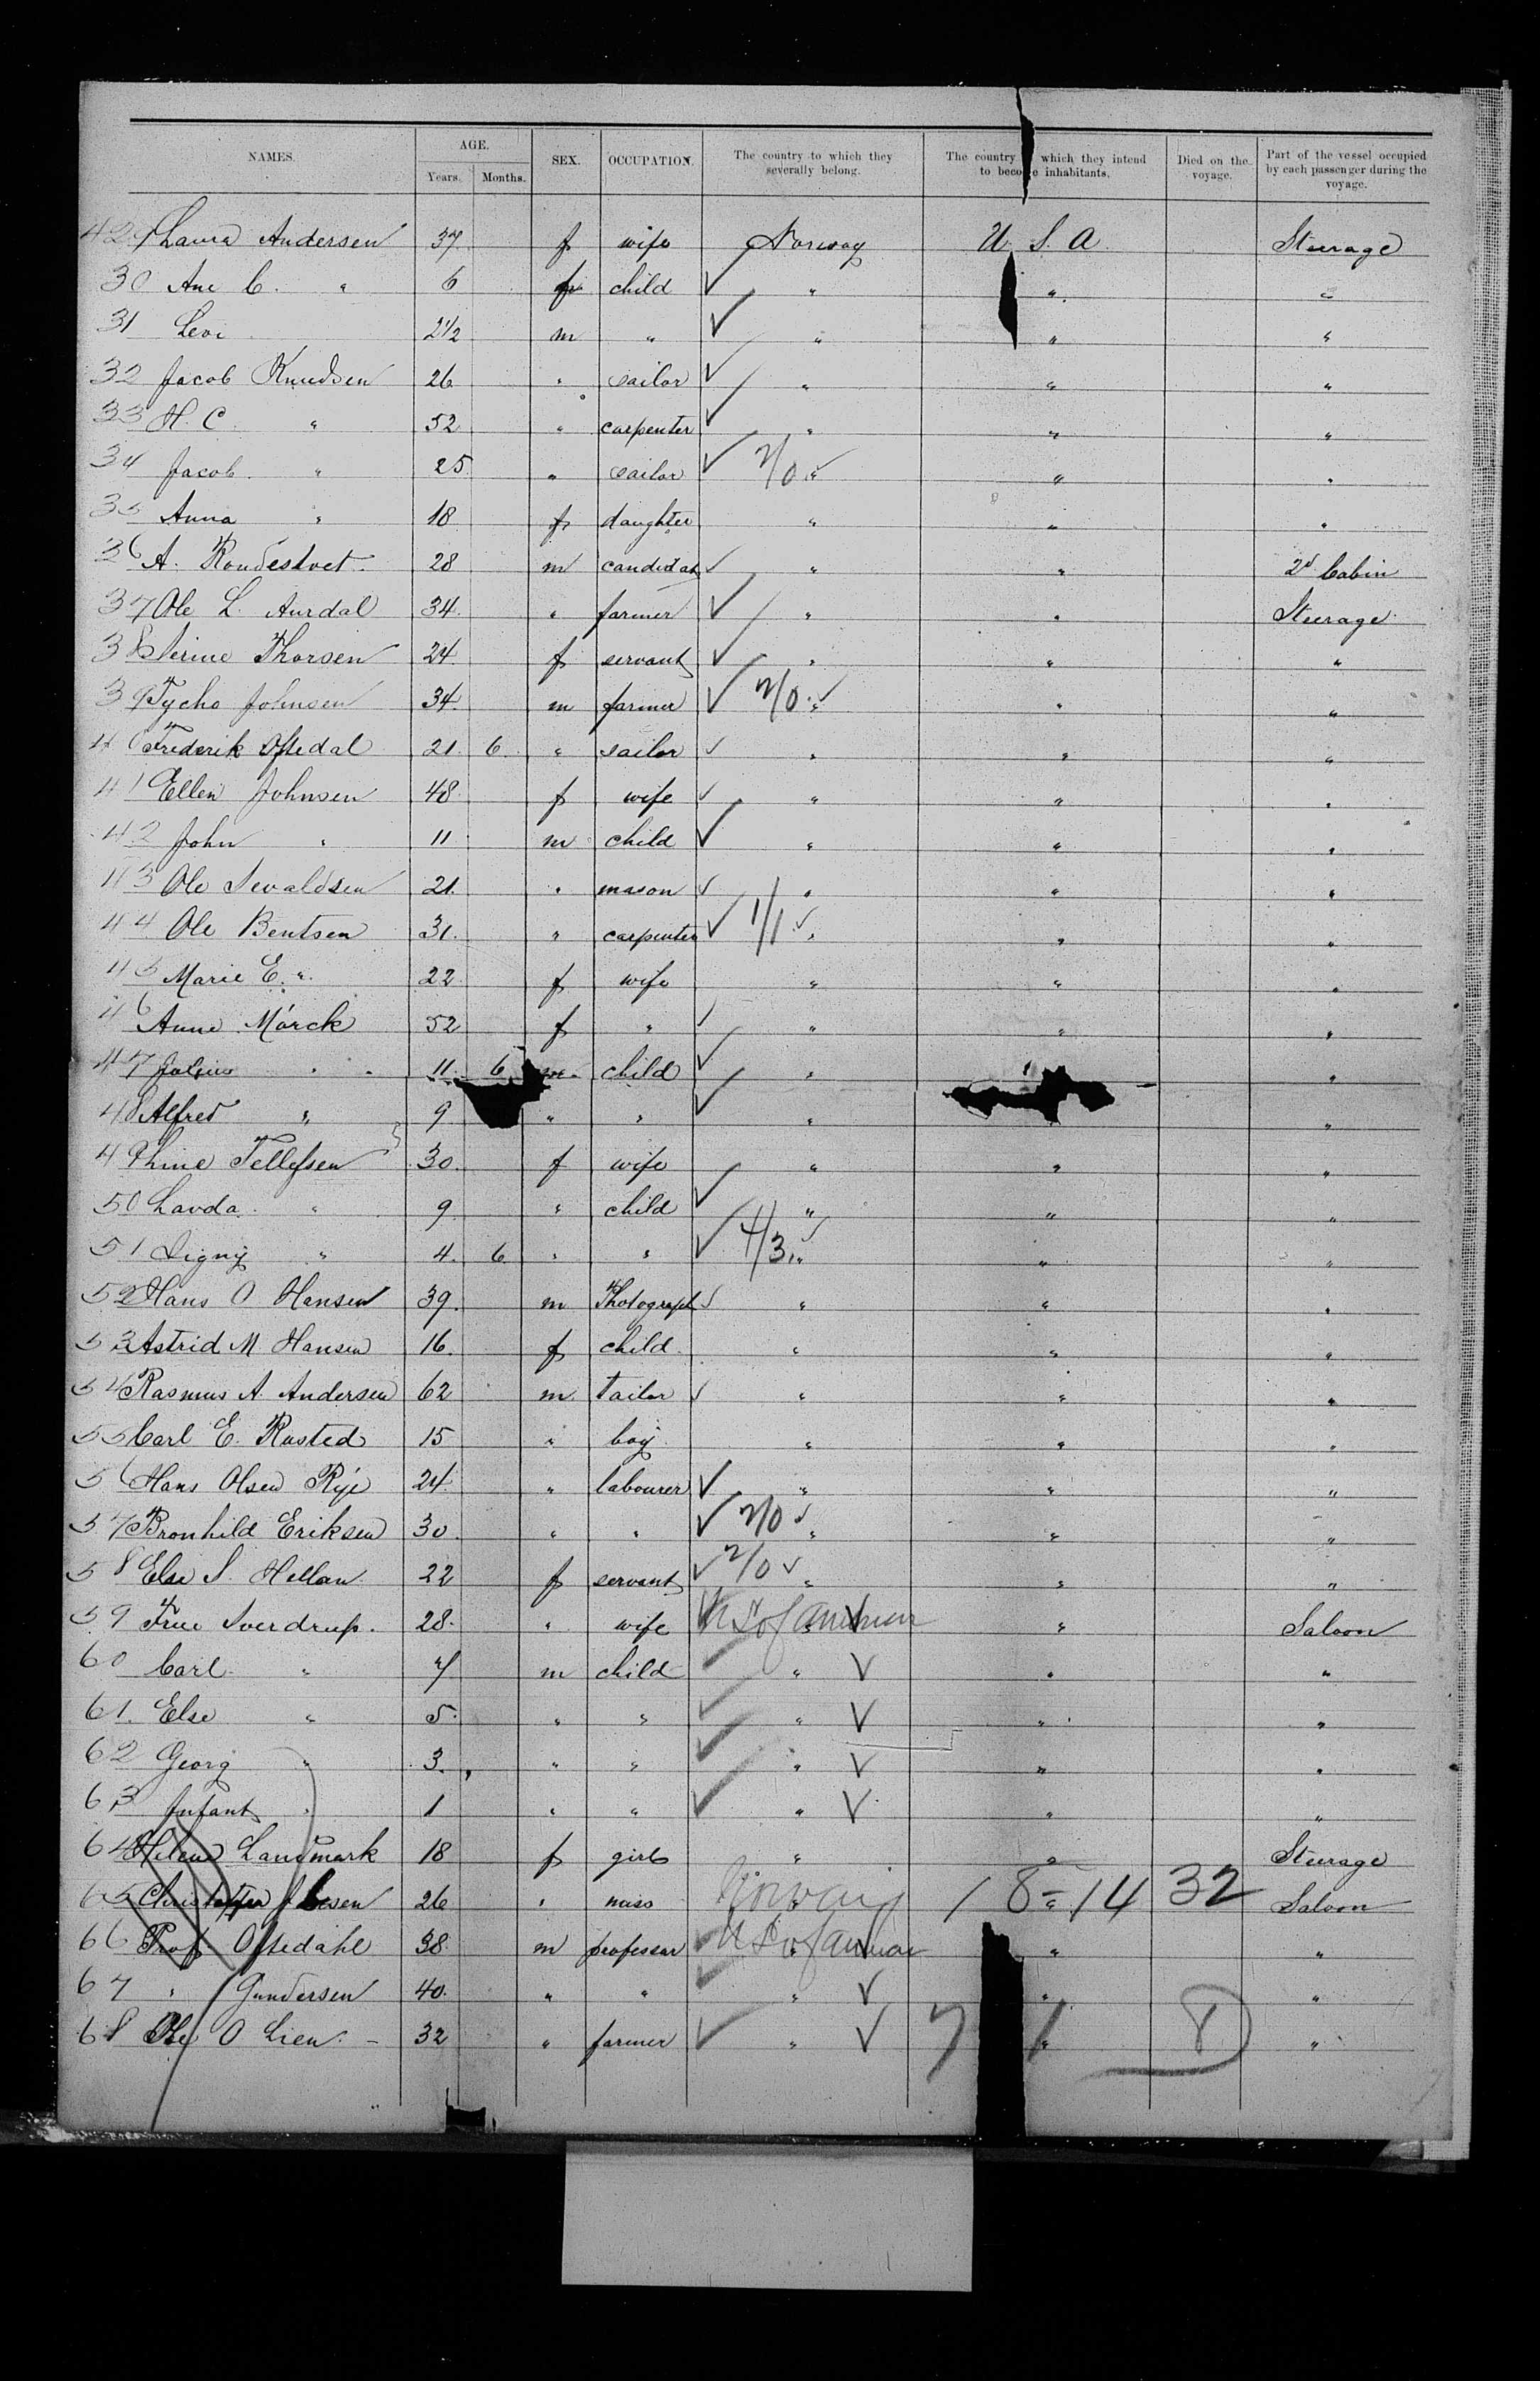 NAMES. AGE. Years. Months. SEX. OCCUPATION. The country to which they severally belong. The country which they intend to become inhabitants. Died on the voyage. Part of the vessel occupied by each passenger during the voyage.
429 Laura Andersen 37 f wife Norway U. S. A. Steerage
30 Ane C. " 6 f child " " "
31 Levi 2½ m " " " "
32 Jacob Knudsen 26 " sailor " " "
33 H. C. " 52 " carpenter " " "
34 Jacob " 25 " sailor 2/0 " " "
35 Anna " 18 f daughter " " "
36 A. Rondestvet 28 m candidat " " 2d Cabin
37 Ole L. Aurdal 34 " farmer " " Steerage
38 Serine Thorsen 24 f servant " " "
39 Tycho Johnsen 34 m farmer 2/0 " " "
40 Frederik Oftedal 21 6 " sailor " " "
41 Ellen Johnsen 48 f wife " " "
42 John " 11 m child " " "
43 Ole Sevaldsen 21 " mason " " "
44 Ole Bentsen 31 " carpenter 1/1 " " "
45 Marie E. " 22 f wife " " "
46 Anne Mörck 52 f " " " "
47 Julius " 11 6 m child " "
48 Alfred " 9 " " " "
49 Thine Tellefsen 30 f wife " " "
50 Lavda " 9 " child " " "
51 Signy " 4 6 " " 4/3 " " "
52 Hans O Hansen 39 m Photograph " " "
53 Astrid M Hansen 16 f child " " "
54 Rasmus A. Andersen 62 m tailor " " "
55 Carl E. Rusted 15 " boy " " "
56 Hans Olsen Rye 24 " labourer " " "
57 Bronhild Eriksen 30 " " 2/0 " " "
58 Else S. Hellan 22 f servant 2/0 " " "
59 Frue Sverdrup. 28 " wife U S of America " " Saloon
60 Carl " 7 m child " " "
61 Else " 5 " " " " "
62 Georg " 3 " " " " "
63 Infant " 1 " " " " "
64 Helene Landmark 18 f girl " " Steerage
65 26 " miss Norway 18 = 14 32 Saloon
66 Prof Oftedahl 38 m professor U S of America " "
67 " Gundersen 40 " " " " "
68 Ole O Lien 32 " farmer " 7 1 " 8 "